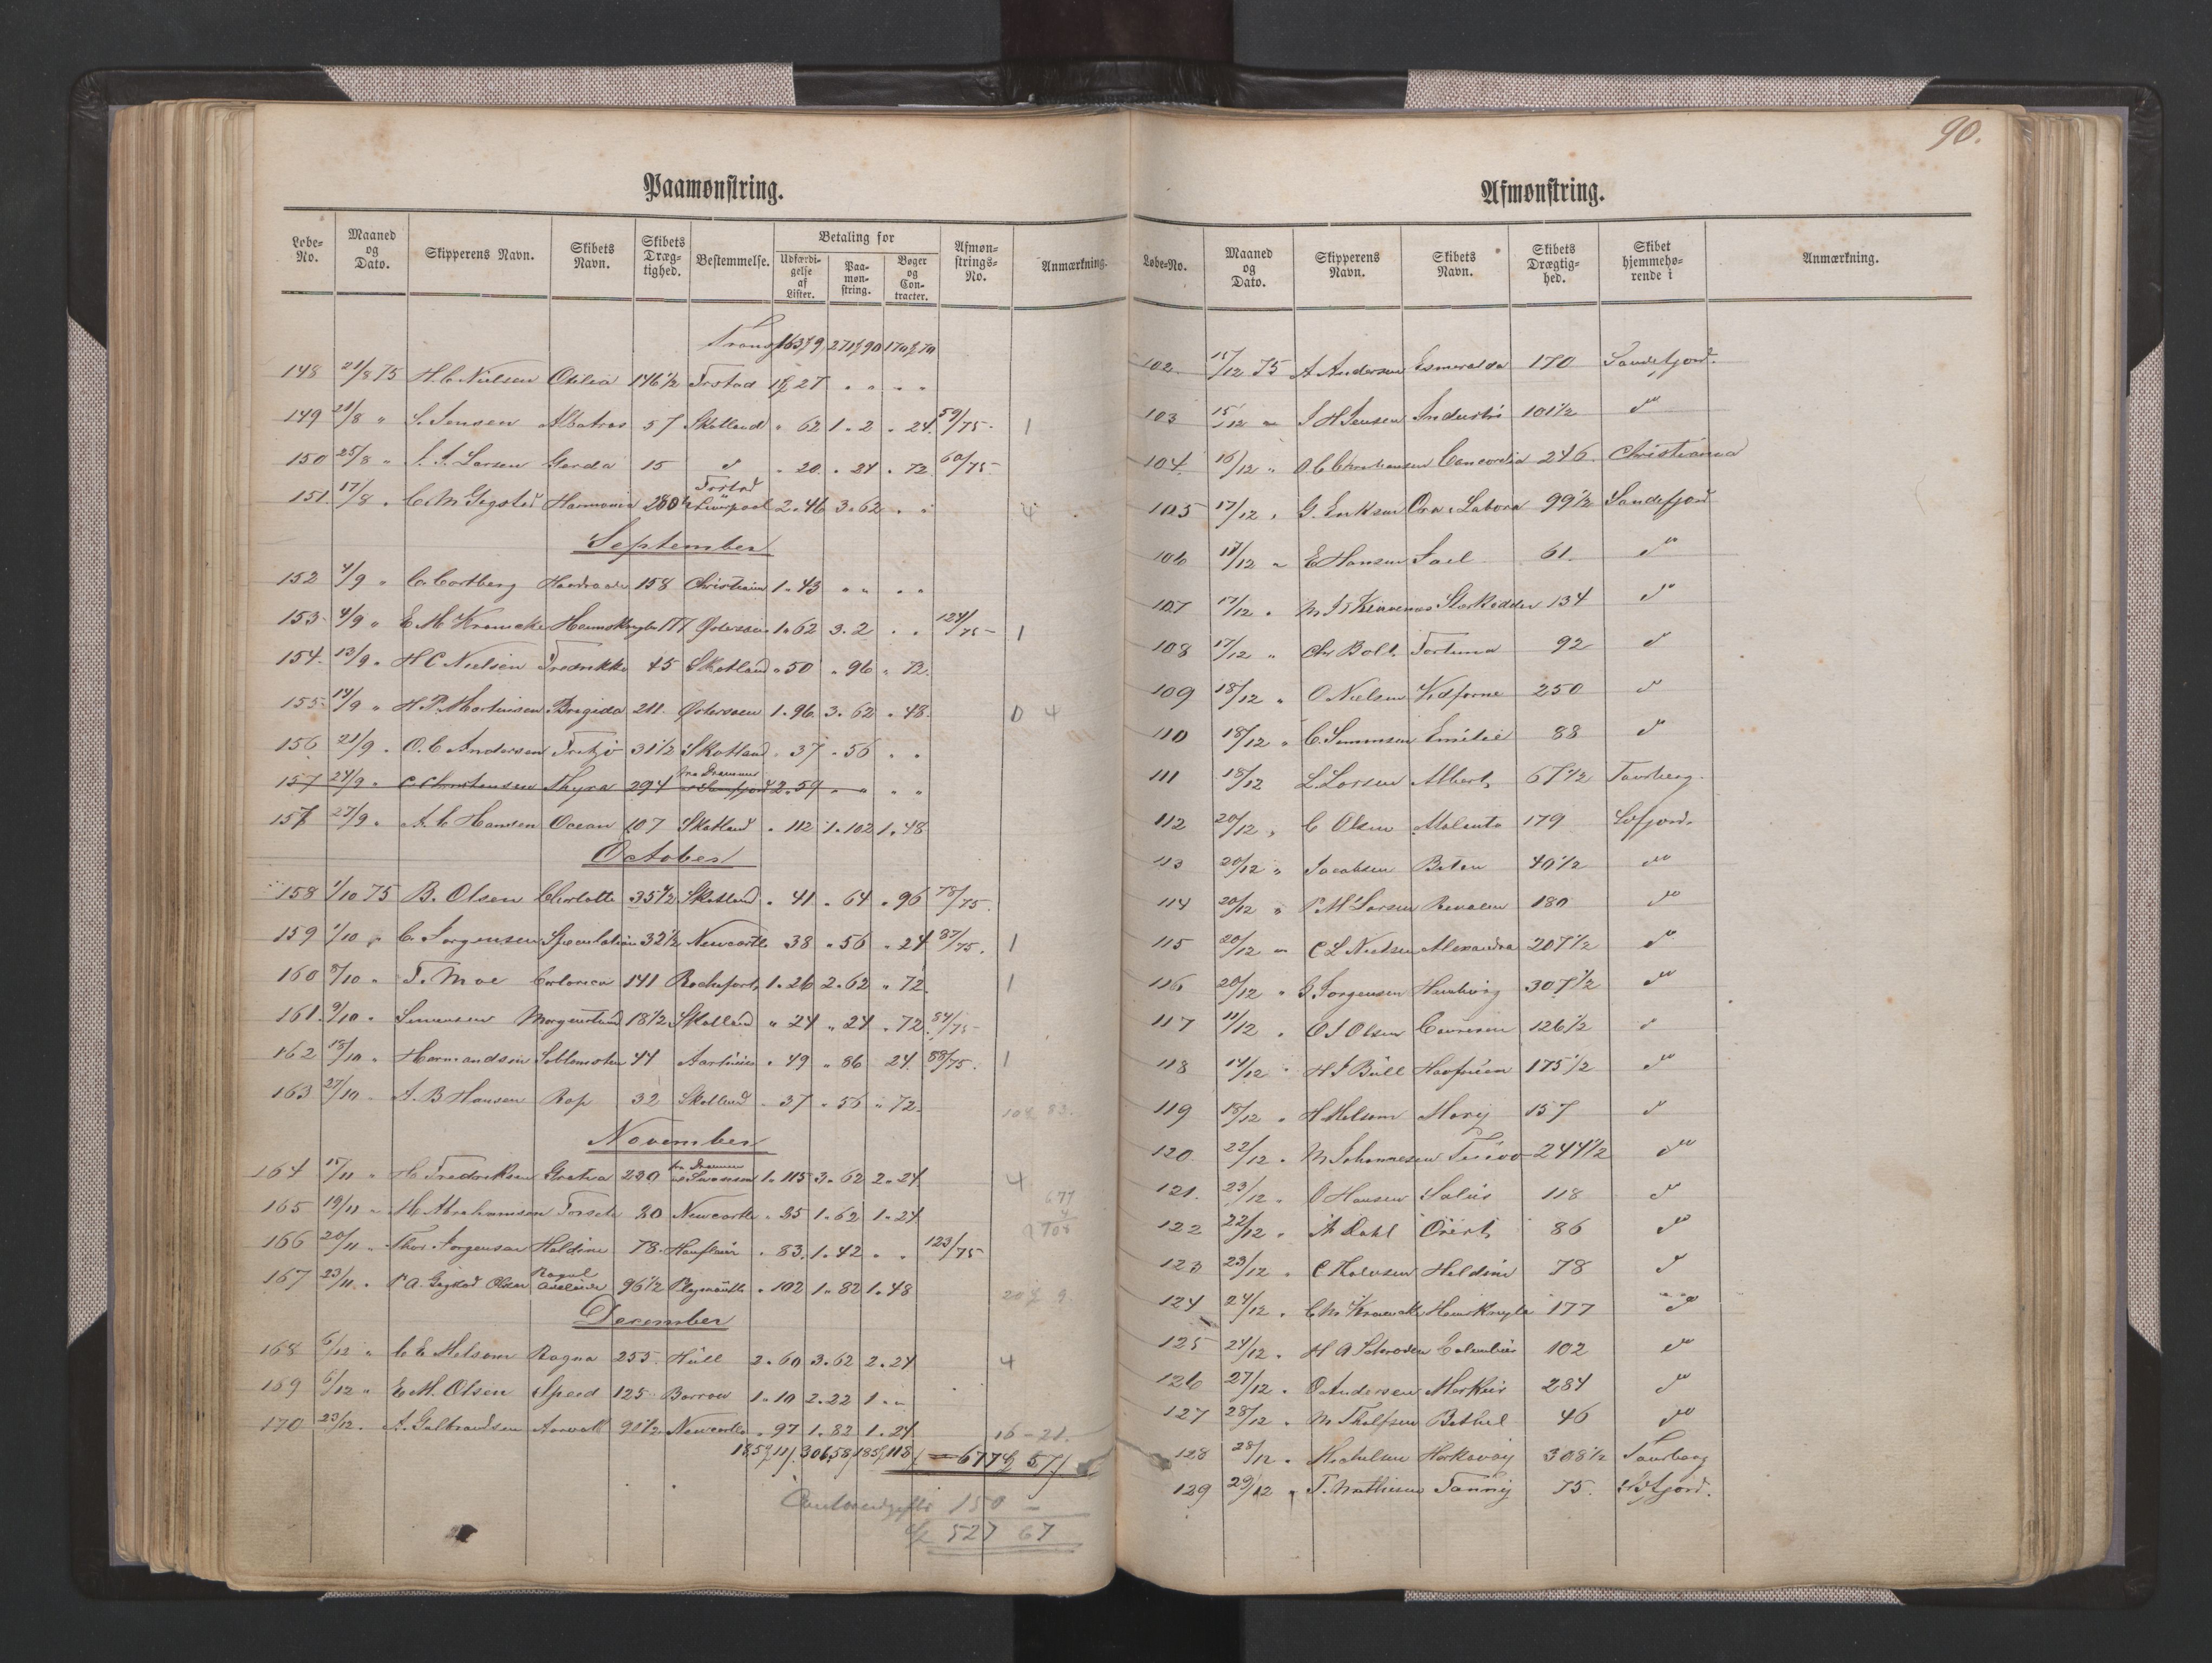 90.
Paamønstring.
Løbe-No. Maaned og Dato. Skipperens Navn. Skibets Navn. Skibets Dræg-tighed. Bestemmelse. Betaling for Udfærdi-gelse af Lister. Paa-møn-string. Bøger og Con-tracter. Afmøn-strings-No. Anmærkning.
148 21/8 75 H. C. Nielsen Otilia 146 1/2 27 " " " "
149 21/8 " S. Jensen Albatros 57 Skotland " 62 1 " 2 " 24 59/75 1
150 25/8 " S. S. Larsen Gerda 15 d " 20 " 24 " 72 60/75
151. 17/8 " C. M. Gogstad Harmonia Liverpool 2 " 46 3 " 62 " " 4
September
152 4/9 " Haardraade 158 Christiania 1 " 43 " " " "
153 4/9 " 177 Østersøen 1 " 62 3 " 2 " " 124/75 1
154. 13/9 " H C Nielsen Fredrikke 45 Skotland " 50 " 96 " 72.
155 14/9 " H. P. Martinsen Brigida 211 Østersøen 1 " 96 3 " 62 " 48. 0 4
156 21/9 " O. C. Andersen 31 1/2 Skotland " 37 " 56 " "
157 24/9 " C Christensen Thyra 294 fra Drammen 2 " 59 " " " "
157 27/9 " A. C. Hansen Ocean 107 Skotland " 112 1 " 102 1 " 48
October
158 1/10 75 B. Olsen Charlotte 35 1/2 Skotland " 41 " 64 " 96 78/75.
159 1/10 " C. Jørgensen Speculation 32 1/2 Newcastle 38 " 56 " 24 87/75. 1
160 8/10 " T. Moe 141 Rochefort 1 " 26 2 " 62 " 72. 1
161. 9/10 " Simensen Morgenstund 18 1/2 Skotland " 24 " 24 " 72 84/75
162 18/10 " 44 " 49 " 86 24. 88/75. 1
163 27/10 " A. B Hansen Rap 32 Skotland " 37 " 56 " 72. 83.
November
164 15/11 " H. Fredriksen 230 fra Drammen Swansea 1 " 115 3 " 62 2 " 24. 4
165 19/11 " M. Abrahamsen 80 Newcastle " 85 1 " 62 1 " 24 677
166 20/11 " Thor. Jørgensen Haldine 78. Honfleur " 83. 1 " 42 " " 123/75 708
167 23/11 " Olsen 96 1/2 " 102 1 " 82 1 " 48
December
168 6/12 " C E Melsom Ragna 255. Hull 2 " 60 3 " 62 2 " 24 4
169 6/12 " E. M. Olsen Speed 125 Barrow 1 " 10 2 " 22 1 " "
170 23/12 " A. Gulbrandsen 91 1/2 Newcastle " 97 1 " 82 1 " 24. 16 - 21.
= 677 57
150 -
527 67
Afmønstring.
Løbe-No. Maaned og Dato. Skipperens Navn. Skibets Navn. Skibets Drægtig-hed. Skibet hjemmehø-rende i Anmærkning.
102. 15/12 75 A Andersen Esmeralda 170 Sandefjord.
103 15/12 " S H Jensen Industri 101 1/2 do
104. 16/12 " O. C Christiansen Concordia 246. Christiania
105 17/12 " G. Eriksen Ora & Labora 99 1/2 Sandefjord
106 17/12 " E Hansen Sael 61. do
107 17/12 " Stærkodder 134 do
108 17/12 " Chr Boll Fortuna 92 do
109 18/12 " O Nielsen Vidfarne 250 do
110 18/12 " C. Simensen Emilie 88 do
111 18/12 L. Larsen Albert 67 1/2 Tønsberg.
112 20/12 " C Olsen Atalanta 179 Sdfjord.
113 20/12 " Jacobsen 40 1/2 do
114 20/12 " P. M Larsen 180 do
115 20/12 " C L Nielsen Alexandra 207 1/2 do
116 20/12 " Jørgensen Hamburg 307 1/2 do
117 11/12 " O S Olsen 126 1/2 do
118 14/12 " H S Bull Havfruen 175 1/2 do
119 18/12 " H Melsom Mary 157 do
120 22/12 " M Johannesen 244 1/2 do
121. 23/12 " O Hansen Salus 118 do
122 22/12 " A Dahl 86 do
123 23/12 " C Halvorsen Haldine 78 do
124 24/12 " 177 do
125 24/12 " H A Schrøder Columbus 102 do
126 27/12 " O Andersen Markus 284 do
127 28/12 " Bethel 46 do
128 28/12 " Michelsen 308 1/2 Tønsberg
129 29/12 " T. Mathiesen Fanny 75. Sdfjord.